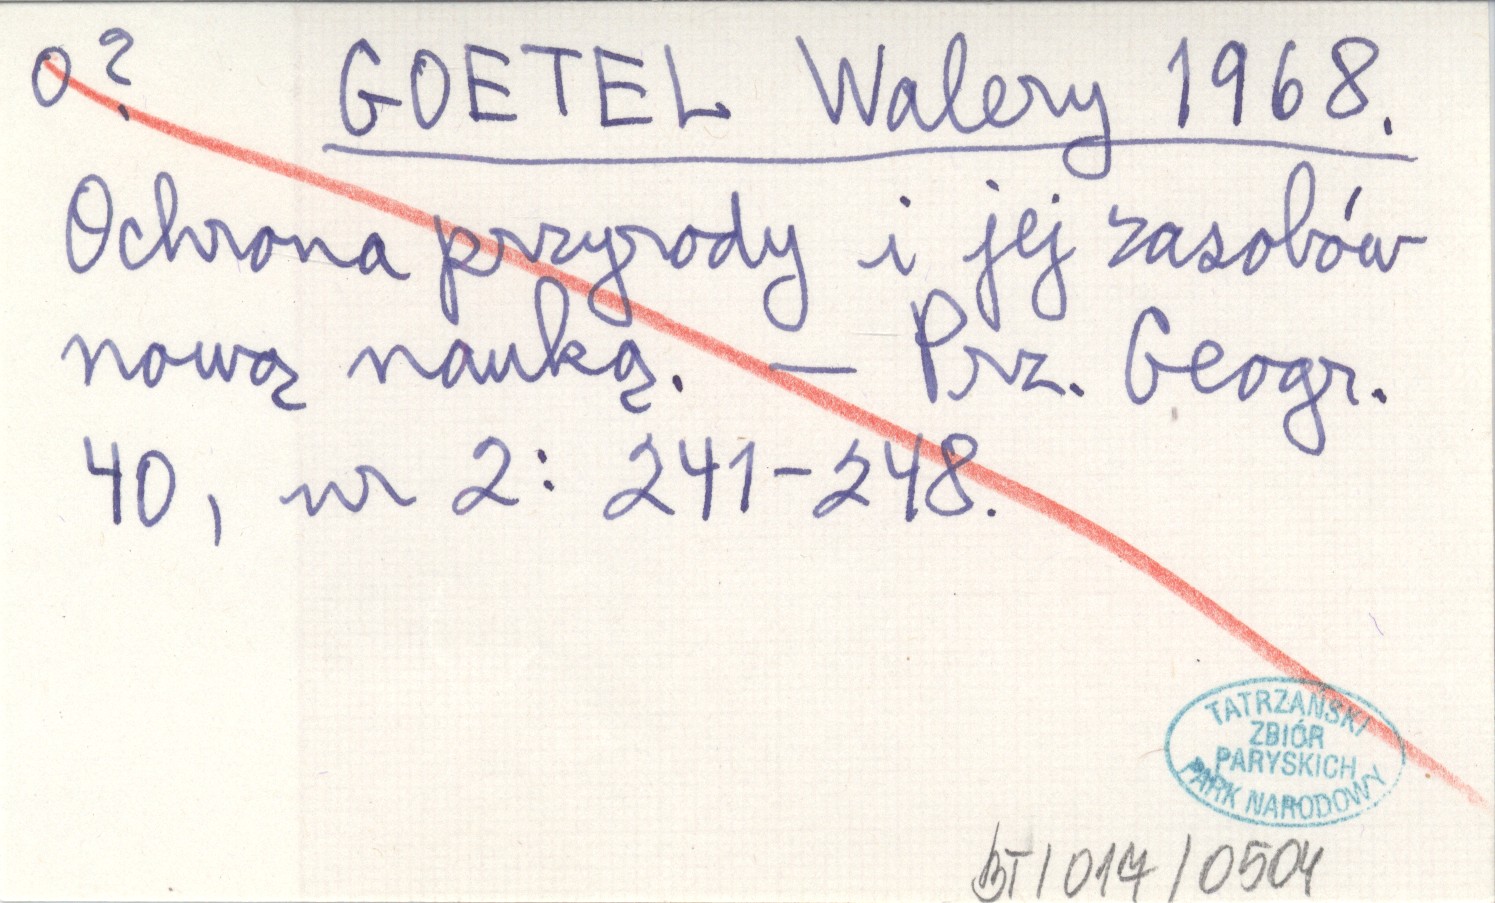 o? GOETEL Walery 1968.
Ochrona przyrody i jej zasobów
nową nauką. — Prz. Geogr.
40, nr 2: 241-248.
TATRZAŃSKI
ZBIÓR
PARYSKICH
PARK NARODOWY
BT/017/0504